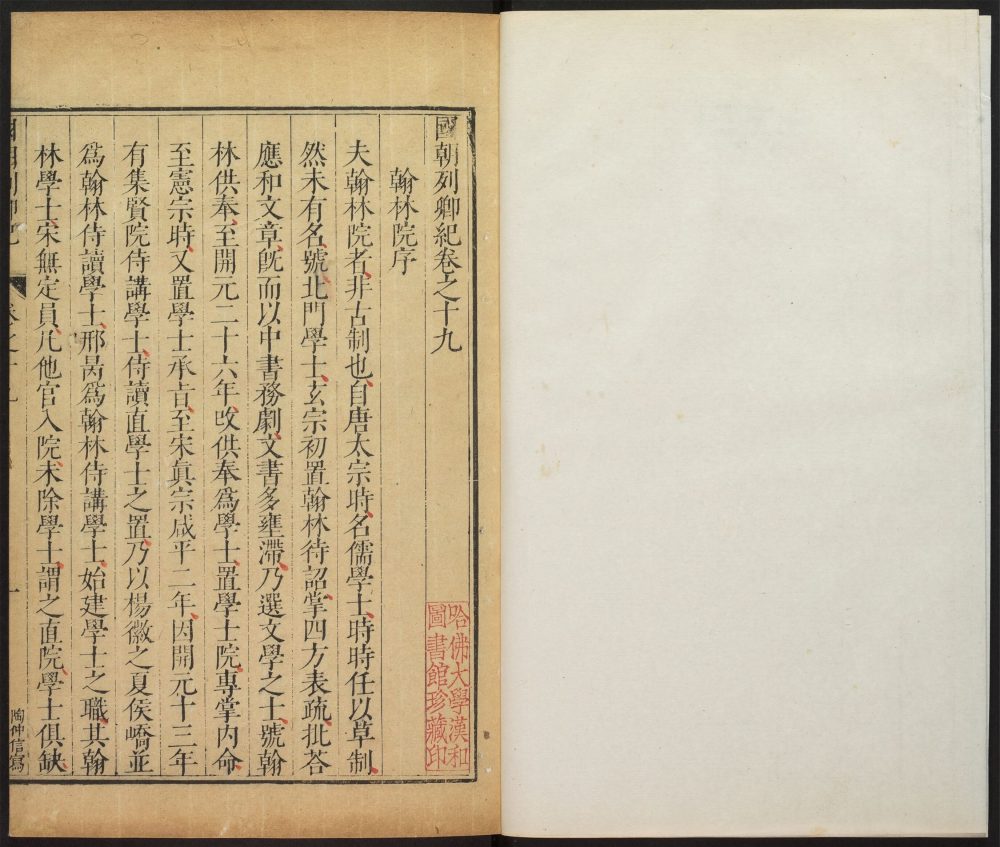 國朝列卿紀卷之十九
翰林院序
夫翰林院者非古制也自唐太宗時名儒學士時時任以草制
然未有名號北門學士玄宗初置翰林待詔掌四方表疏批荅
應和文章旣而以中書務劇文書多壅滯乃選文學之士號翰
林供奉至開元二十六年改供奉爲學士置學士院專掌内命
至憲宗時又置學士承旨至宋眞宗咸平二年因開元十三年
有集賢院侍講學士侍讀直學士之置乃以楊徽之夏侯嶠並
爲翰林侍讀學士邢昺爲翰林侍講學士始建學士之職其翰
林學士宋無定員凡他官入院未除學士謂之直院學士俱缺
國朝列卿紀 卷之十九 一 陶仲信寫
哈佛大學漢和
圖書館珍藏印